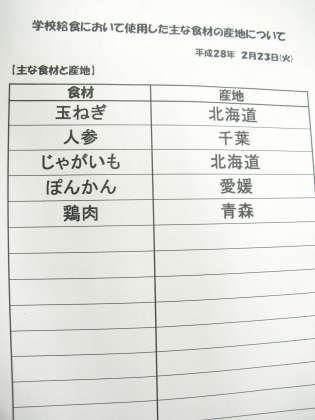 学校給食において使用した主な食材の産地について
平成28年 2月23日(火)
【主な食材と産地】
食材 産地
玉ねぎ 北海道
人参 千葉
じゃがいも 北海道
ぽんかん 愛媛
鶏肉 青森